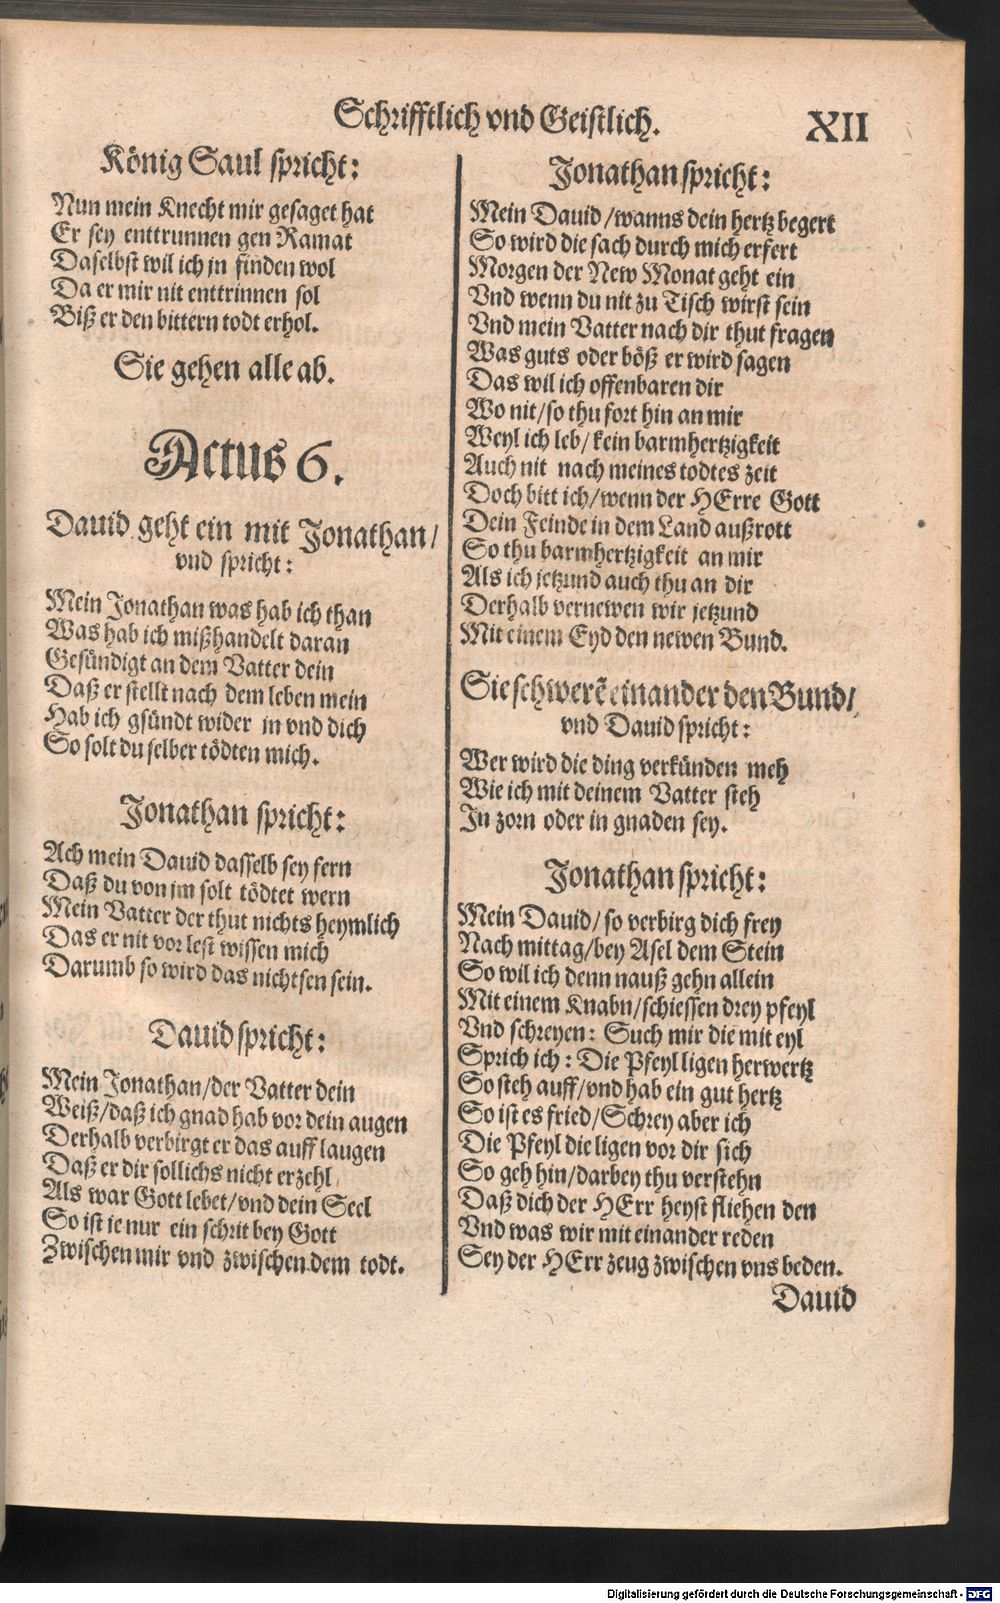 Schrifftlich vnd Geistlich.
XII
König Saul spricht:
Nun mein Knecht mir gesaget hat
Er sey enttrunnen gen Ramat
Daselbst wil ich jn finden wol
Da er mir nit enttrinnen sol
Biß er den bittern todt erhol.
Sie gehen alle ab.
Actus 6.
Dauid geht ein mit Jonathan/
vnd spricht:
Mein Jonathan was hab ich than
Was hab ich mißhandelt daran
Gesündigt an dem Vatter dein
Daß er stellt nach dem leben mein
Hab ich gsündt wider jn vnd dich
So solt du selber tödten mich.
Jonathan spricht:
Ach mein Dauid dasselb sey fern
Daß du von jm solt tödtet wern
Mein Vatter der thut nichts heymlich
Das er nit vor lest wissen mich
Darumb so wird das nichtsen sein.
Dauid spricht:
Mein Jonathan/der Vatter dein
Weiß/daß ich gnad hab vor dein augen
Derhalb verbirgt er das auff laugen
Daß er dir sollichs nicht erzehl
Als war Gott lebet/vnd dein Seel
So ist je nur ein schrit bey Gott
Zwischen mir vnd zwischen dem todt.
Jonathan spricht:
Mein Dauid/wanns dein hertz begert
So wird die sach durch mich erfert
Morgen der New Monat geht ein
Vnd wenn du nit zu Tisch wirst sein
Vnd mein Vatter nach dir thut fragen
Was guts oder böß er wird sagen
Das wil ich offenbaren dir
Wo nit/so thu fort hin an mir
Weyl ich leb/kein barmhertzigkeit
Auch nit nach meines todtes zeit
Doch bitt ich/wenn der HErre Gott
Dein Feinde in dem Land außrott
So thu barmhertzigkeit an mir
Als ich jetzund auch thu an dir
Derhalb vernewen wir jetzund
Mit einem Eyd den newen Bund.
Sie schwerẽ einander den Bund/
vnd Dauid spricht:
Wer wird die ding verkünden meh
Wie ich mit deinem Vatter steh
In zorn oder in gnaden sey.
Jonathan spricht:
Mein Dauid/so verbirg dich frey
Nach mittag/bey Asel dem Stein
So wil ich denn nauß gehn allein
Mit einem Knabn/schiessen drey pfeyl
Vnd schreyen: Such mir die mit eyl
Sprich ich: Die Pfeyl ligen herwertz
So steh auff/vnd hab ein gut hertz
So ist es fried/Schrey aber ich
Die Pfeyl die ligen vor dir sich
So geh hin/darbey thu verstehn
Daß dich der HErr heyst fliehen den
Vnd was wir mit einander reden
Sey der HErr zeug zwischen vns beden.
Dauid
Digitalisierung gefördert durch die Deutsche Forschungsgemeinschaft - DFG